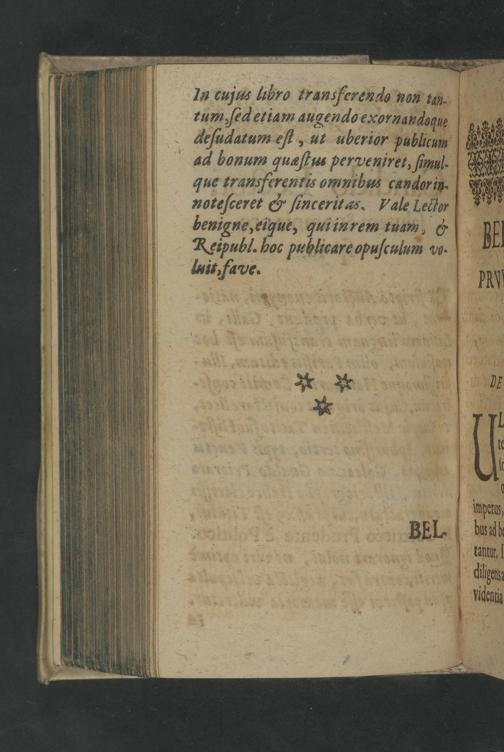 In cujus libro transferendo non tan-
tum, sed etiam augendo exornandoque
desudatum est, ut uberior publicum
ad bonum quæstus perveniret, simul-
que transferentis omnibus candor in-
notesceret & sinceritas. Vale Lector
benigne, eique, qui in rem tuam, &
Reipubl. hoc publicare opusculum vo-
luit, fave.
BEL-
BEL
PRV
DE
UL
impetus,
bus ad b
tantur. I
diligen
videntia